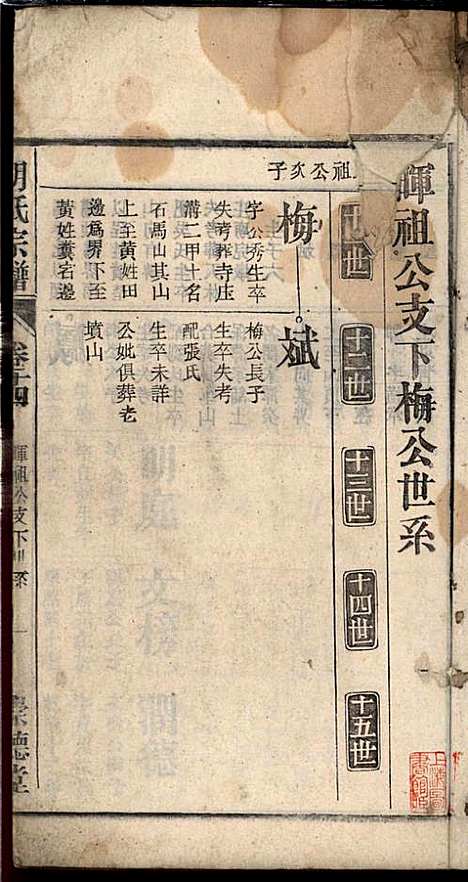 暉祖公支下梅公世系
十一世 十二世 十三世 十四世 十五世
祖公次子
梅
字公秀生卒
失考葬寺庄
溝二甲土名
石馬山其山
上至黃姓田
邊爲界下至
黃姓糞宕邊
斌
梅公長子
生卒失考
配張氏
生卒未詳
公妣俱葬老
墳山
胡氏宗譜
卷十四
暉祖公支下世系
一
崇德堂
上海圖
書館藏